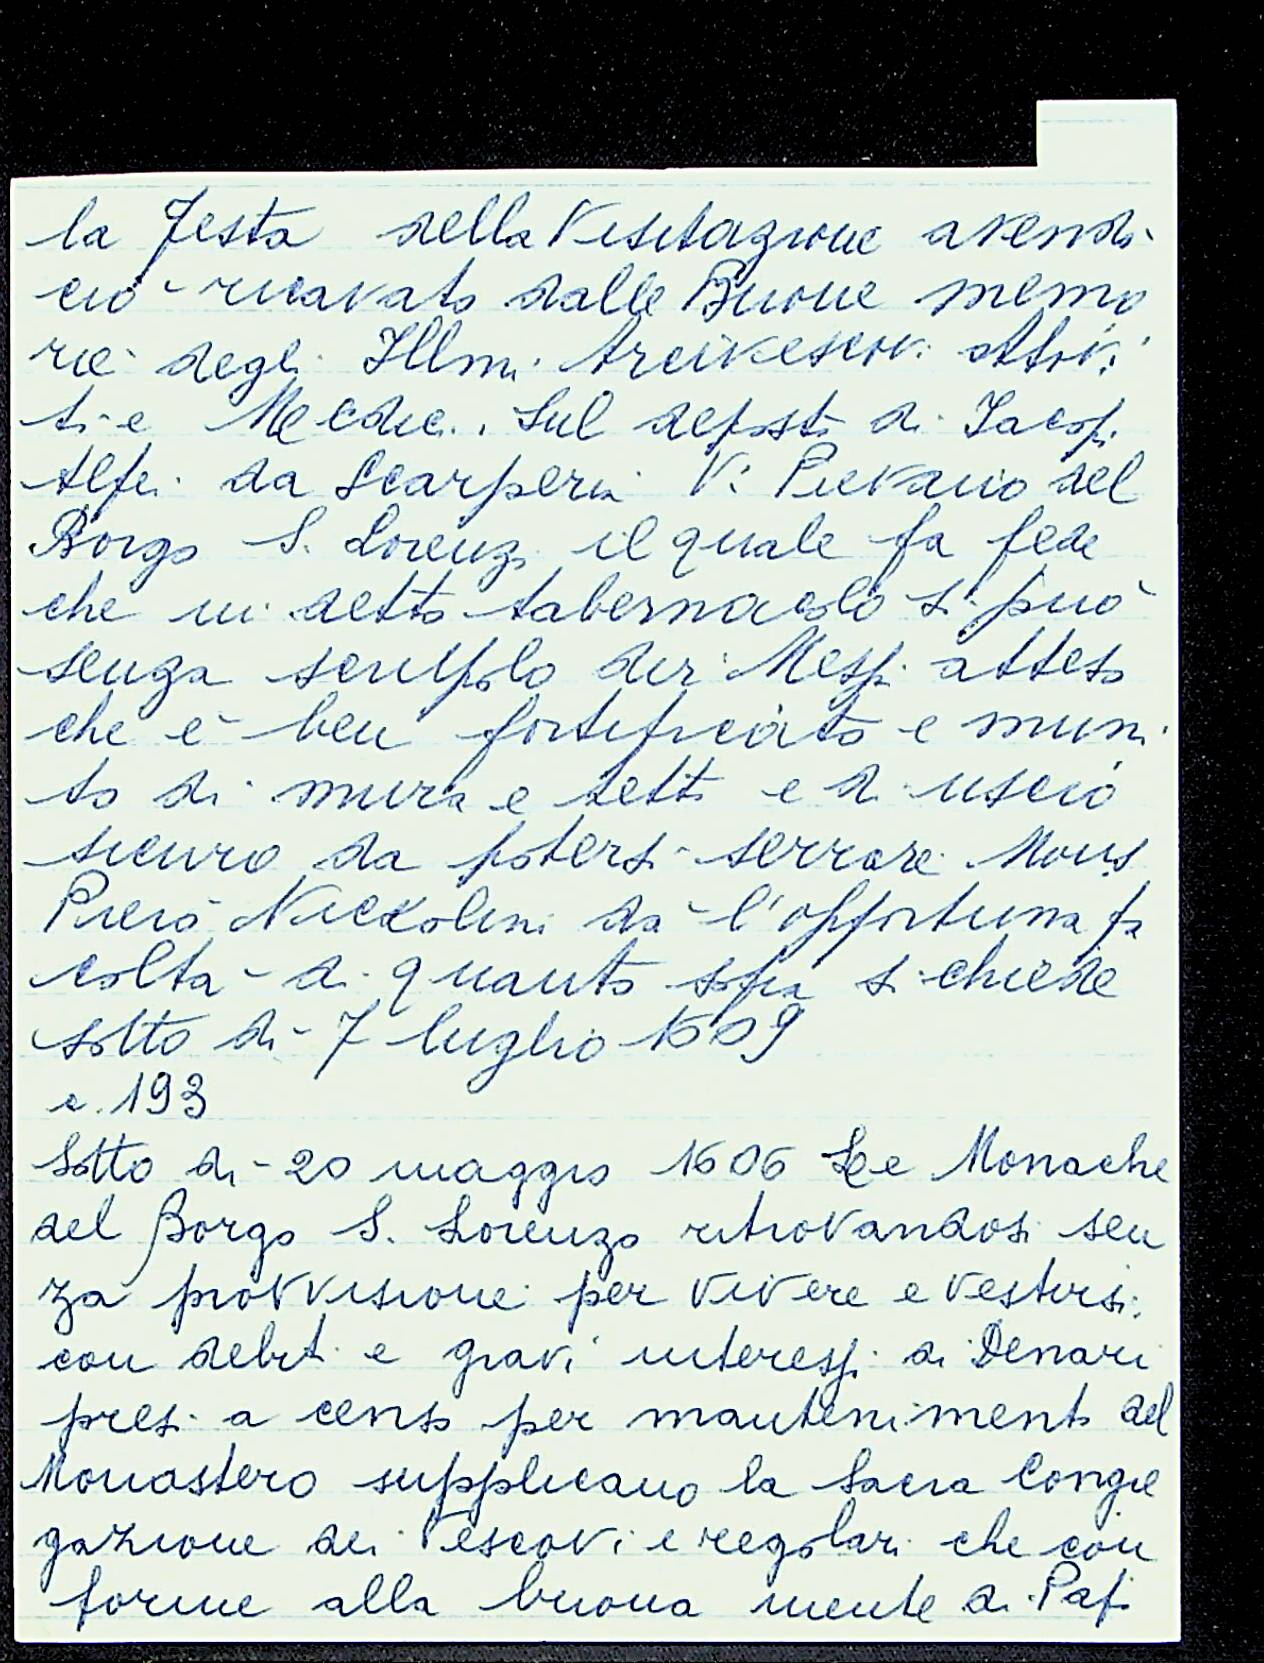 la Festa della Visitazione avendo
ciò ricavato dalle Buone memo
rie degli Illmi Arcivescovi Altovi
ti e Medici. Sul deposto di Iacopo
Alfei da Scarperia V: Pievano del
Borgo S. Lorenzo il quale fa fede
che in detto tabernacolo si può
senza scrupolo dir Messa atteso
che è ben fortificato e muni
to di mura e tetto e di uscio
sicuro da potersi serrare Mons
Piero Niccolini dà l'opportuna fa
coltà di quanto sopra si chiede
sotto di 7 luglio 1609
c. 193
Sotto di 20 maggio 1606 Le Monache
del Borgo S. Lorenzo ritrovandosi sen
za provvisione per vivere e vestirsi
con debiti e gravi interessi di Denari
presi a censo per mantenimento del
Monastero supplicano la Sacra Congre
gazione dei Vescovi e regolari che con
forme alla buona mente di Papa